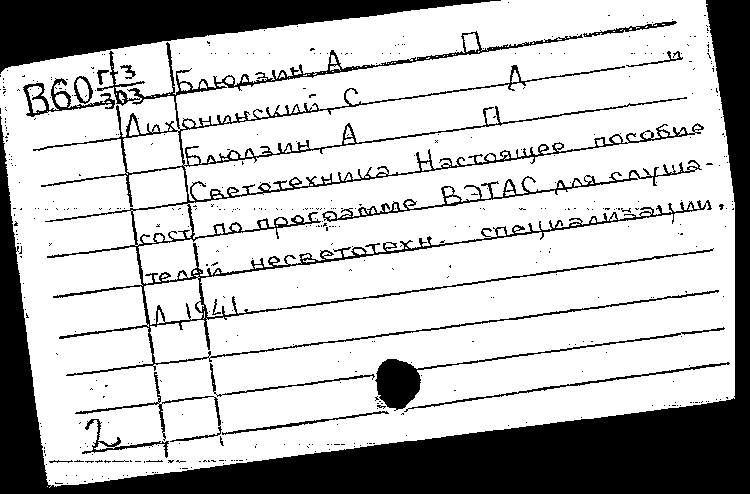 В60 Г-3/303 Блюдзин, А П
Лихонинский, С Д и
Блюдзин, А П
Светотехника. Настоящее пособие
сост. по программе ВЭТАС для слуша-
телей несветотехн. специализации.
Л, 1941.
2